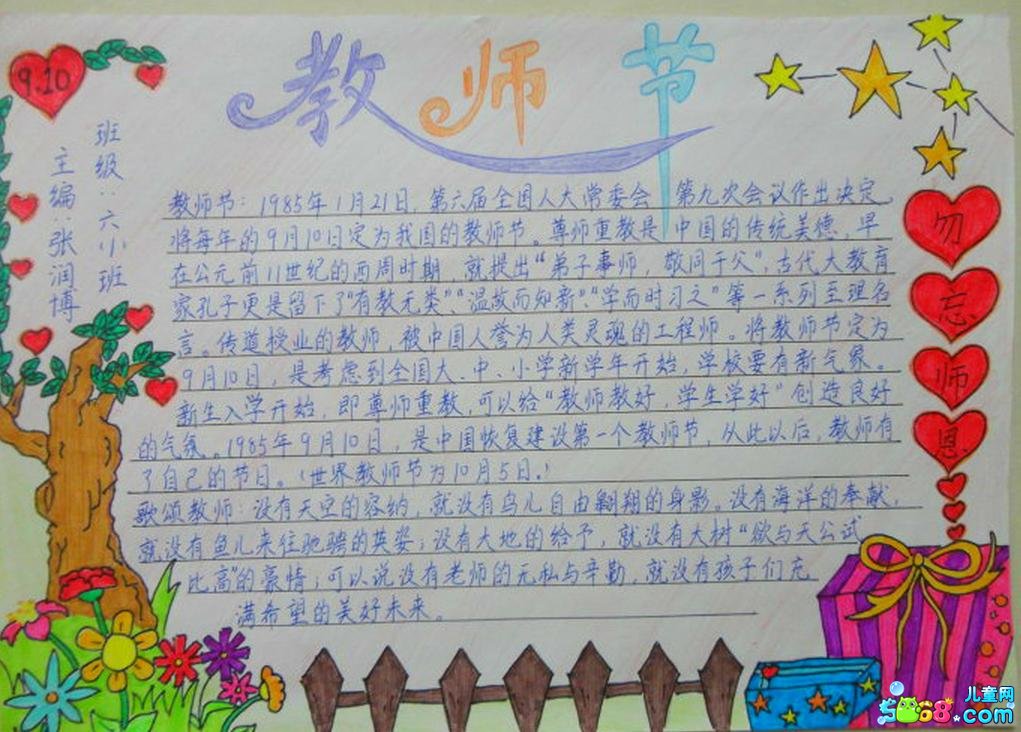 教师节
9.10
班级:六(小)班
主编:张润博
教师节:1985年1月21日,第六届全国人大常委会 第九次会议作出决定。
将每年的9月10日定为我国的教师节。尊师重教是 中国的传统美德,早
在公元前11世纪的西周时期,就提出“弟子事师,敬同于父”,古代大教育
家孔子更是留下了“有教无类”、“温故而知新”、“学而时习之”等一系列至理名
言。传道授业的教师,被中国人誉为人类灵魂的工程师。将教师节定为
9月10日,是考虑到全国大、中、小学新学年开始,学校要有新气象。
新生入学开始,即尊师重教,可以给“教师教好,学生学好”创造良好
的气氛。1985年9月10日,是中国恢复建设第一个教师节,从此以后,教师有
了自己的节日。(世界教师节为10月5日。)
歌颂教师:没有天空的容纳,就没有鸟儿自由翱翔的身影。没有海洋的奉献,
就没有鱼儿来往驰骋的英姿;没有大地的给予,就没有大树“欲与天公试
比高”的豪情;可以说没有老师的无私与辛勤,就没有孩子们充
满希望的美好未来。
勿忘师恩
儿童网
5068.com